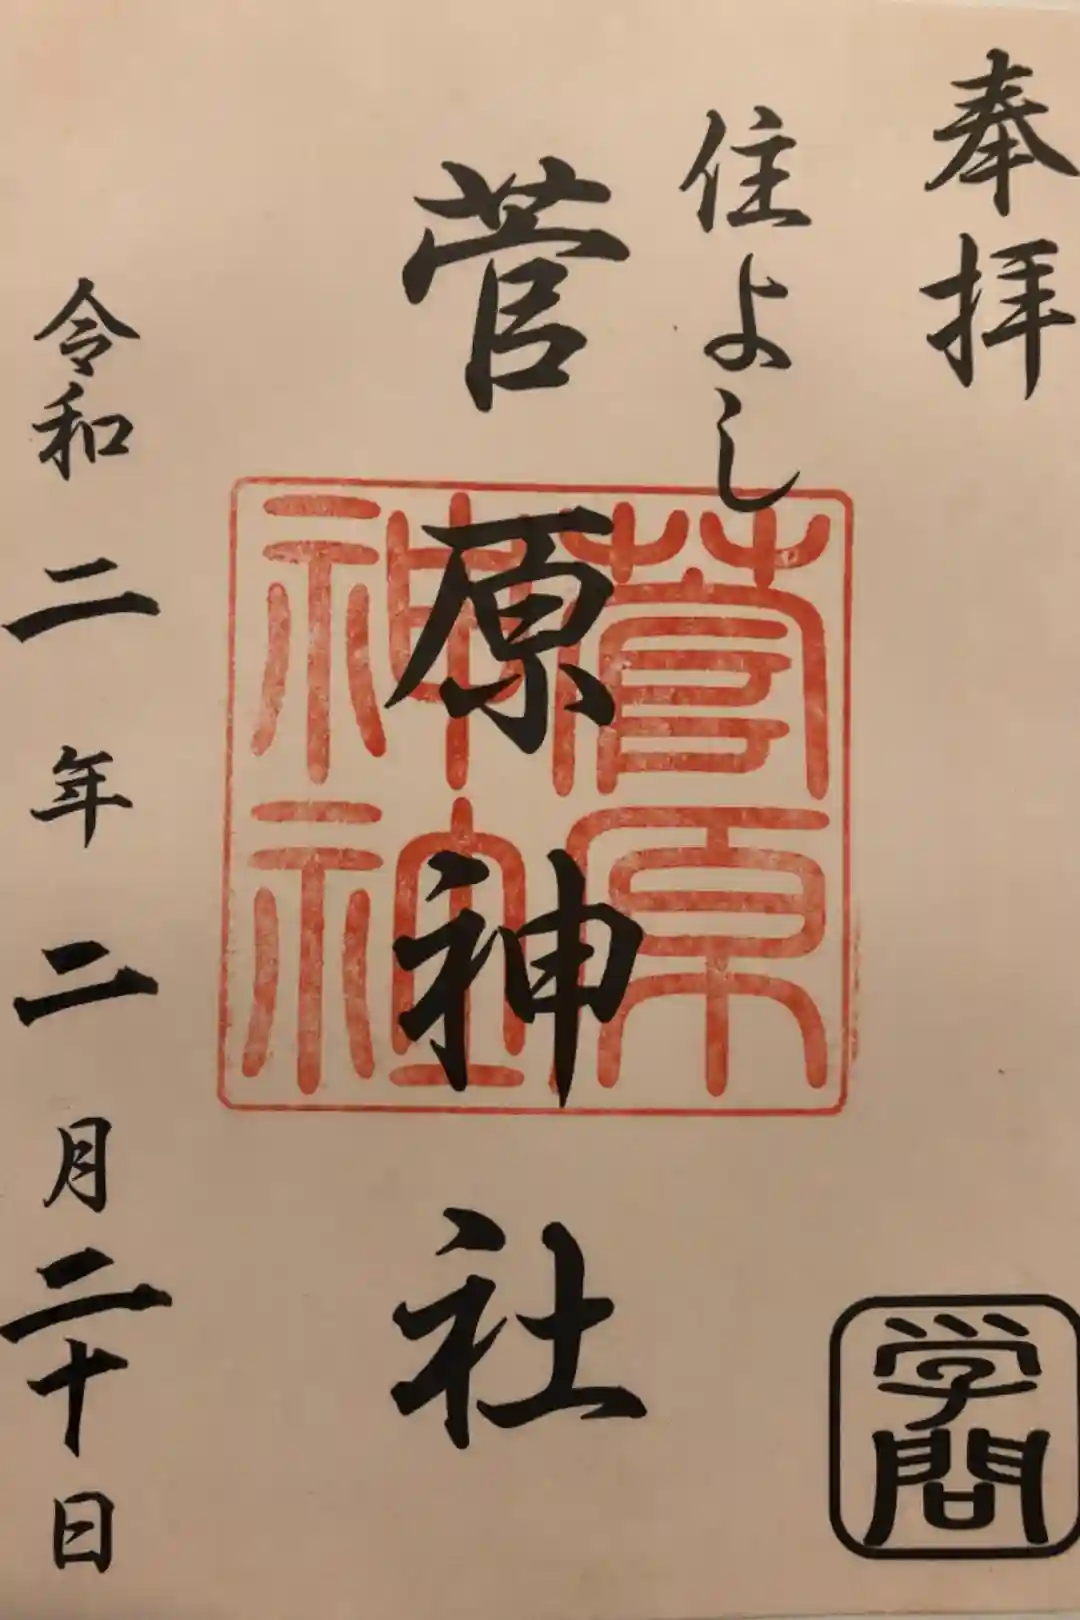 奉拝
学問
住よし
菅原神社
菅原
神社
令和二年二月二十日